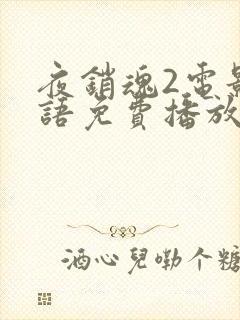 夜銷魂2電影
語免費播放
酒心兒嘞个糖